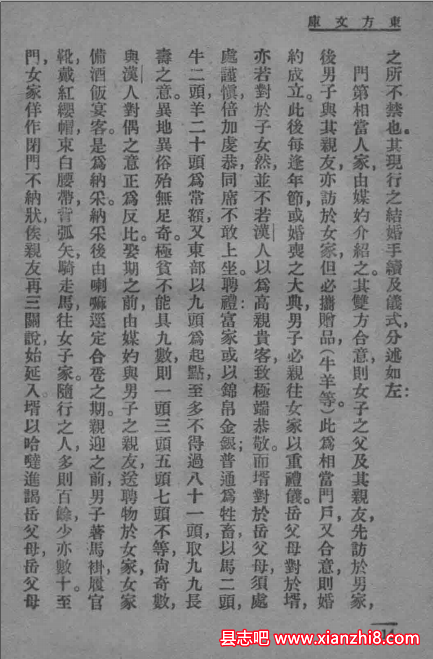 東方文庫
之所不禁也。其現行之結婚手續及儀式，分述如左：
門第相當人家，由媒妁介紹之。其雙方合意，則女子之父及其親友，先訪於男家，
後男子與其親友，亦訪於女家，但必攜贈品（牛羊等）。此爲相當門戶，又合意則婚
約成立。此後每逢年節，或婚喪之大典，男子必親往女家以重禮儀。岳父母對於壻，
亦若對於子女然，並不若漢人以爲高親貴客，致極端恭敬。而壻對於岳父母，須處
處謹愼，倍加虔恭，同席不敢上坐。聘禮：富家或以錦帛金銀；普通爲牲畜，以馬二頭，
牛二頭，羊二十頭爲常額。又東部以九頭爲起點，至多不得過八十一頭，取九九長
壽之意。異地異俗，殆無足奇。極貧不能具九數，則一頭三頭五頭七頭不等，尙奇數，
與漢人對偶之意正爲反比。娶期之前，由媒妁與男子之親友送聘物於女家，女家
備酒飯宴客，是爲納采。納采後由喇嘛選定合卺之期。親迎之前，男子著馬褂，履官
靴，戴紅纓帽，束白腰帶，背弧矢，騎走馬，往女子家。隨行之人，多則百餘，少亦數十。至
門，女家佯作閉門不納狀，俟親友再三關說，始延入。壻以哈噠進謁岳父母，岳父母
14
县志吧 www.xianzhi8.com